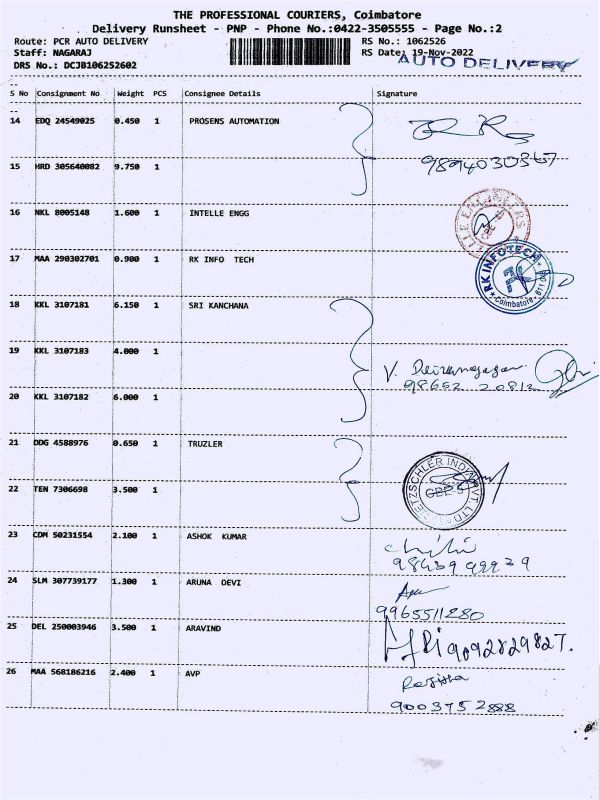 THE PROFESSIONAL COURIERS, Coimbatore
Delivery Runsheet - PNP - Phone No.:0422-3505555 - Page No.:2
Route: PCR AUTO DELIVERY RS No.: 1062526
Staff: NAGARAJ RS Date: 19-Nov-2022
AUTO DELIVERY
DRS No.: DCJB106252602
S No Consignment No Weight PCS Consignee Details Signature
14 EDQ 24549025 0.450 1 PROSENS AUTOMATION
9894030367
15 HRD 305640082 9.750 1
16 NKL 8005148 1.600 1 INTELLE ENGG
ENGINEERS
17 MAA 290302701 0.900 1 RK INFO TECH
RK INFOTECH
RK
Coimbatore - 611
18 KKL 3107181 6.150 1 SRI KANCHANA
19 KKL 3107183 4.000 1
V.
98652 20812
20 KKL 3107182 6.000 1
21 DDG 4588976 0.650 1 TRUZLER
22 TEN 7306698 3.500 1
ETZSCHLER INDIA PVT. LTD
CBE
23 CDM 50231554 2.100 1 ASHOK KUMAR
98439 99939
24 SLM 307739177 1.300 1 ARUNA DEVI
9965511280
25 DEL 250003946 3.500 1 ARAVIND
9092829827.
26 MAA 568186216 2.400 1 AVP
Rajitha
9003752888